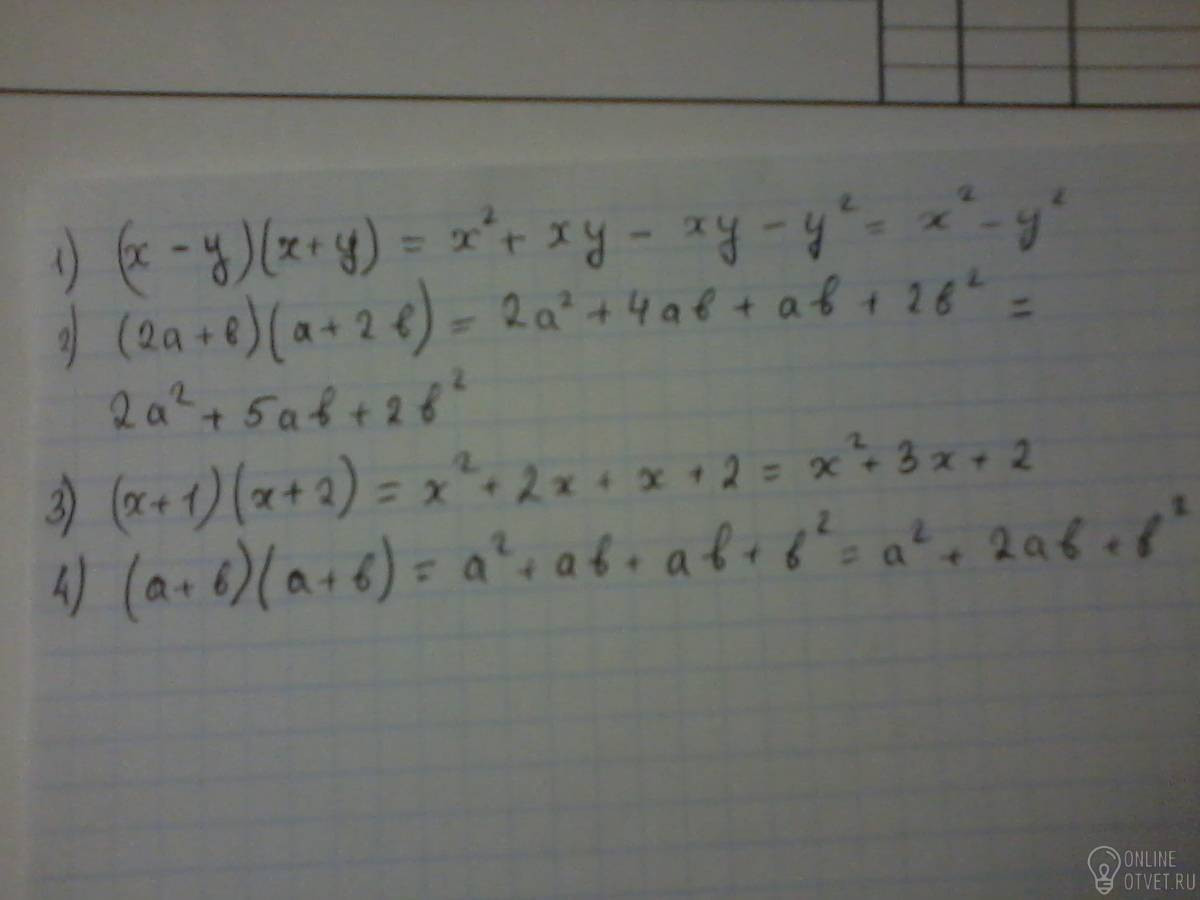 1) (x - y)(x + y) = x² + xy - xy - y² = x² - y²
2) (2a + b)(a + 2b) = 2a² + 4ab + ab + 2b² =
2a² + 5ab + 2b²
3) (x + 1)(x + 2) = x² + 2x + x + 2 = x² + 3x + 2
4) (a + b)(a + b) = a² + ab + ab + b² = a² + 2ab + b²
ONLINE
OTVET.RU